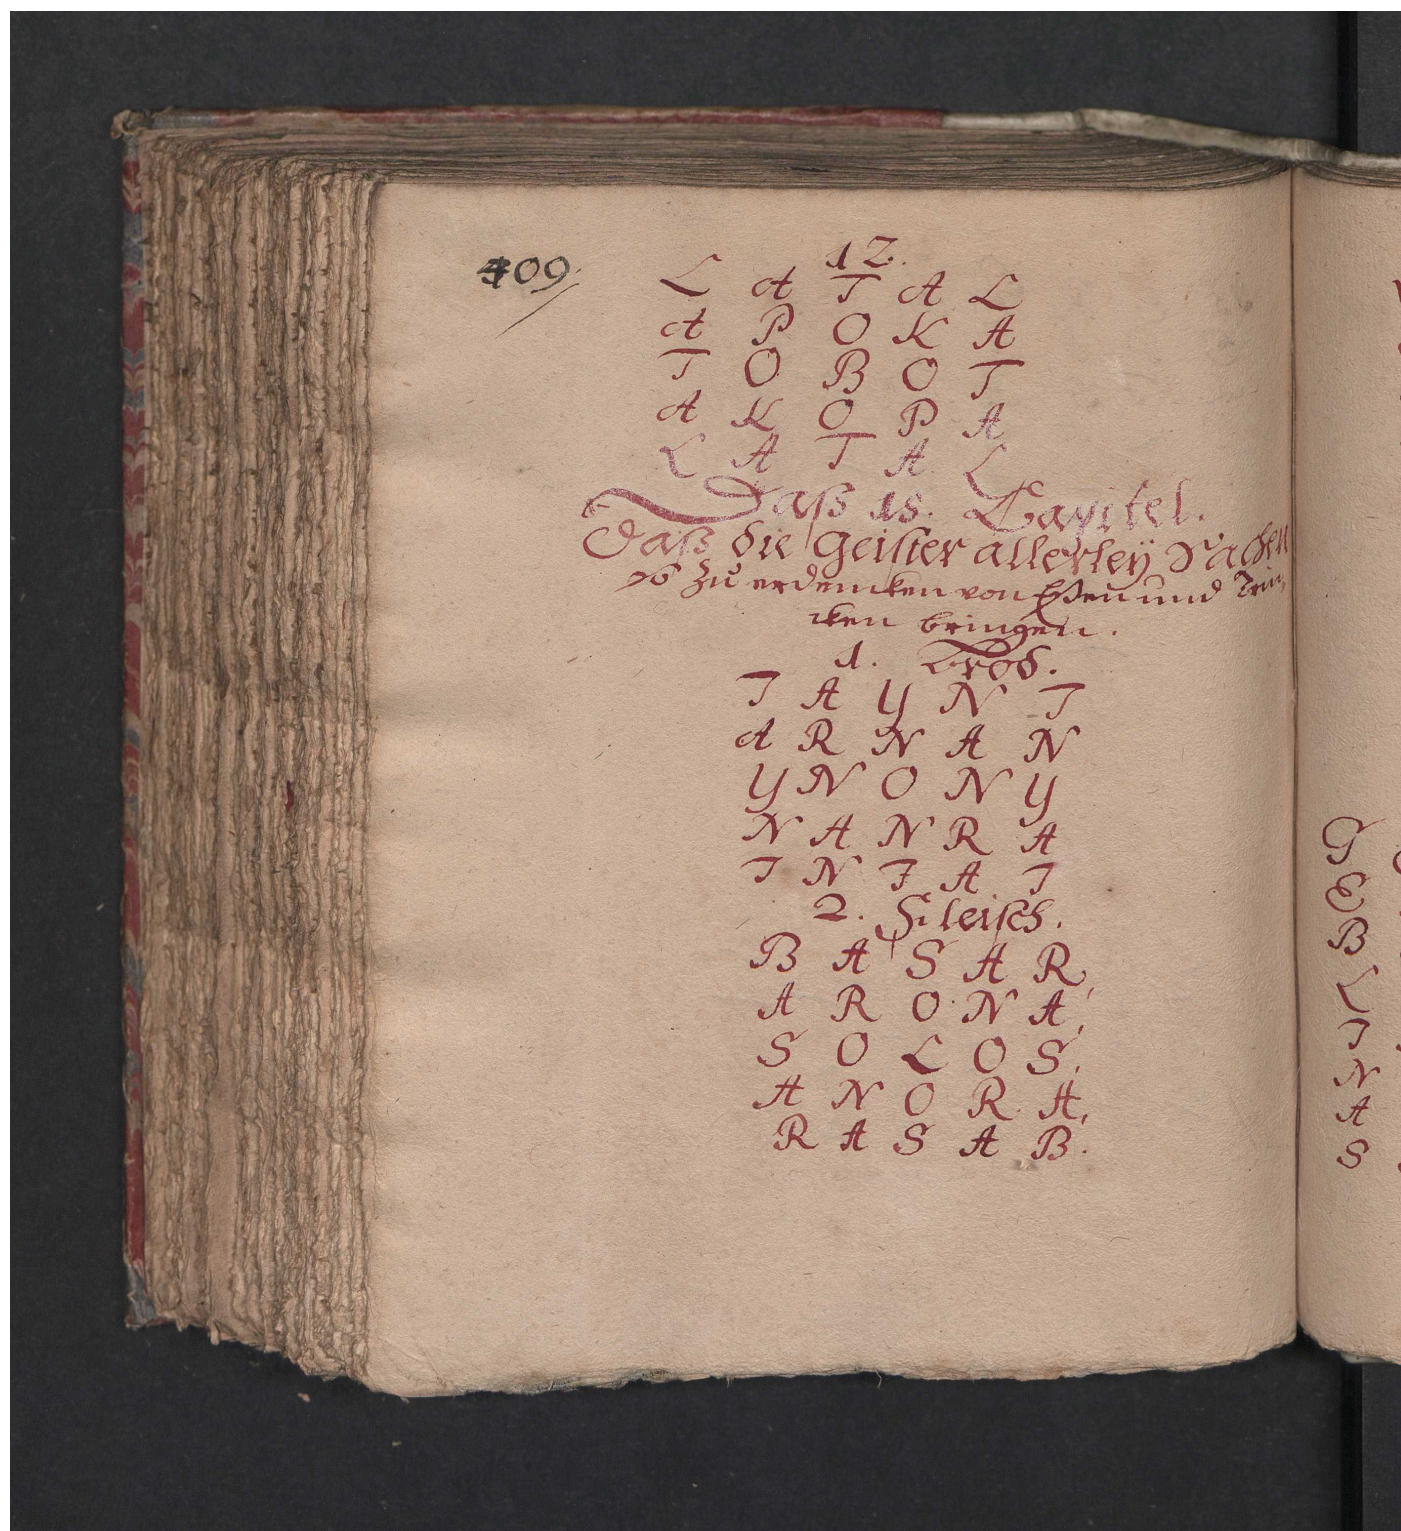 409.
12.
L A T A L
A P O K A
T O B O T
A K O P A
L A T A L
Daß 18. Capitel.
Daß die Geister allerleÿ Sachen
zu erdencken von Eßen und Trin,
cken bringen.
1. Brod.
I A Y N T
A R N A N
Y N O N Y
N A N R A
T N I A T
2. Fleisch.
B A S A R,
A R O N A,
S O L O S,
A N O R A,
R A S A B.
T
E
B
L
I
N
A
S